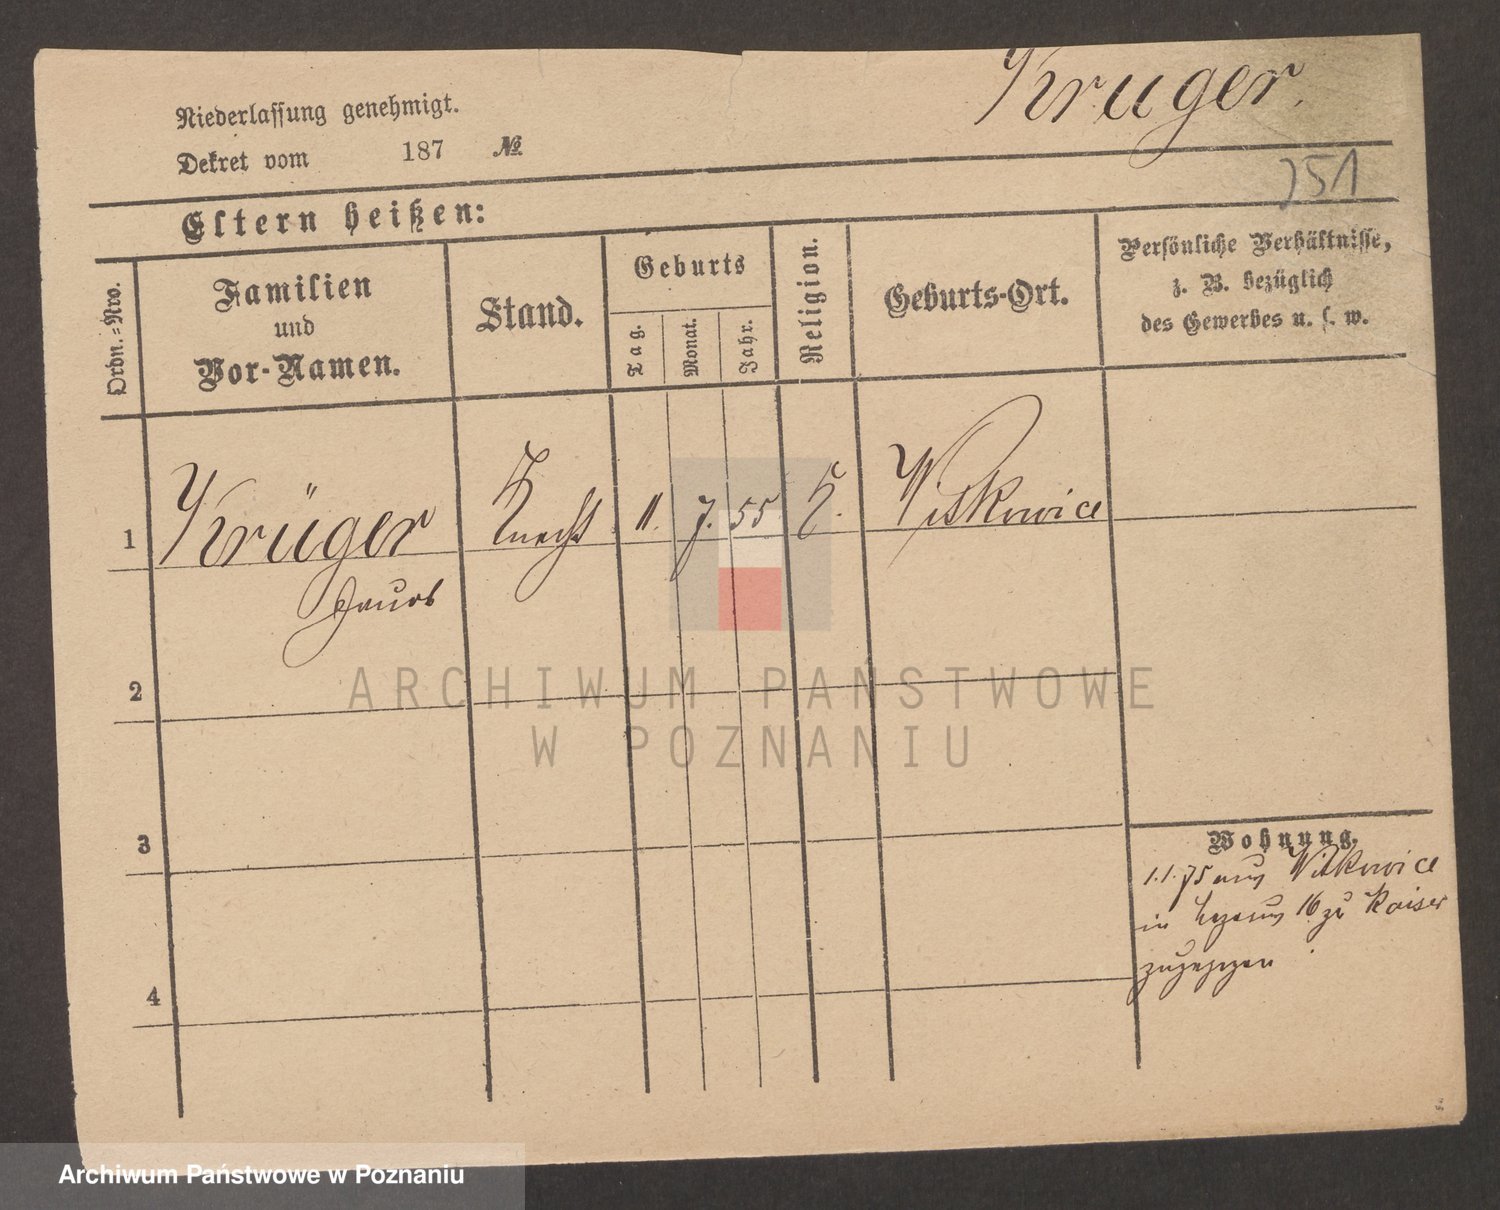 Krüger.
Niederlassung genehmigt.
Dekret vom 187 №
251
Eltern heißen:
Ordn.=Nro.
Familien
und
Vor-Namen.
Stand.
Geburts
Tag.
Monat.
Jahr.
Religion.
Geburts-Ort.
Persönliche Verhältnisse,
z. B. bezüglich
des Gewerbes u. s. w.
1 Krüger Knecht 11. 7. 55 K. Witkowice
Jacob
2
3
4
Wohnung.
1.1.75 aus Witkowice
in 16 zu Kaiser
zugezogen
ARCHIWUM PAŃSTWOWE
W POZNANIU
Archiwum Państwowe w Poznaniu